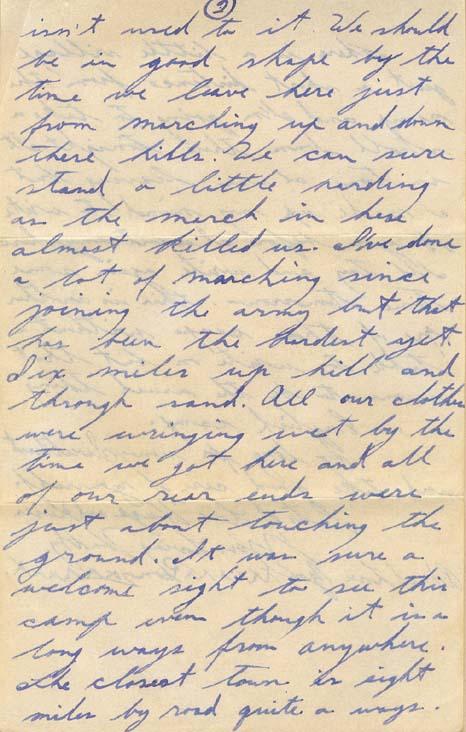 2
isn't used to it. We should
be in good shape by the
time we leave here just
from marching up and down
there hills. We can sure
stand a little harding
as the march in here
almost killed us. I've done
a lot of marching since
joining the army but that
has been the hardest yet.
Six miles up hill and
through sand. All our clothes
were wringing wet by the
time we got here and all
of our rear ends were
just about touching the
ground. It was sure a
welcome sight to see this
camp even though it is a
long ways from anywhere.
The closest town is eight
miles by road quite a ways.